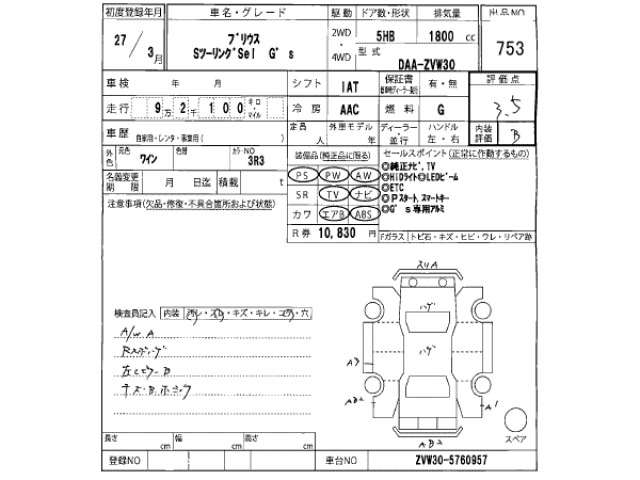 初度登録年月 車名・グレード 駆動 ドア数・形状 排気量 出品NO
27 / 3月 プリウス 2WD・4WD 5HB 1800 cc 753
Sツーリング Sel G's 型式 DAA-ZVW30
車検 年 月 シフト IAT 保証書 有・無 評価点
走行 9万2千100 キロ・マイル 冷房 AAC 燃料 G 3.5
車歴 自家用・レンタ・事業用( ) 定員 人 外車モデル 年 ディーラー・並行 ハンドル 左・右 内装評価 B
外色 元色 ワイン 色替 カラーNO 3R3 装備品(純正品に限る) セールスポイント(正常に作動するもの)
名義変更期限 月 日迄 積載 t PS PW AW ◎純正ナビ,TV
◎HiDライト◎LEDビーム
注意事項(欠品・修復・不具合箇所および状態) SR TV ナビ ◎ETC
◎Pスタート,スマートキー
カワ エアB ABS ◎G's専用アルミ
R券 10,830 円 Fガラス トビ石・キズ・ヒビ・ウレ・リペア跡
スリA
ハゲ
検査員記入 内装 汚レ・スレ・キズ・キレ・コゲ・穴
A/W A
ハゲ
A3
A B2
A1
AB2
長さ cm 幅 cm 高さ cm スペア
登録NO 車台NO ZVW30-5760957